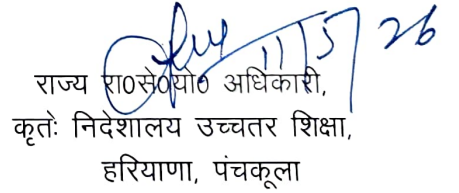 11/5/26
राज्य रा0से0यो0 अधिकारी,
कृतेः निदेशालय उच्चतर शिक्षा,
हरियाणा, पंचकूला